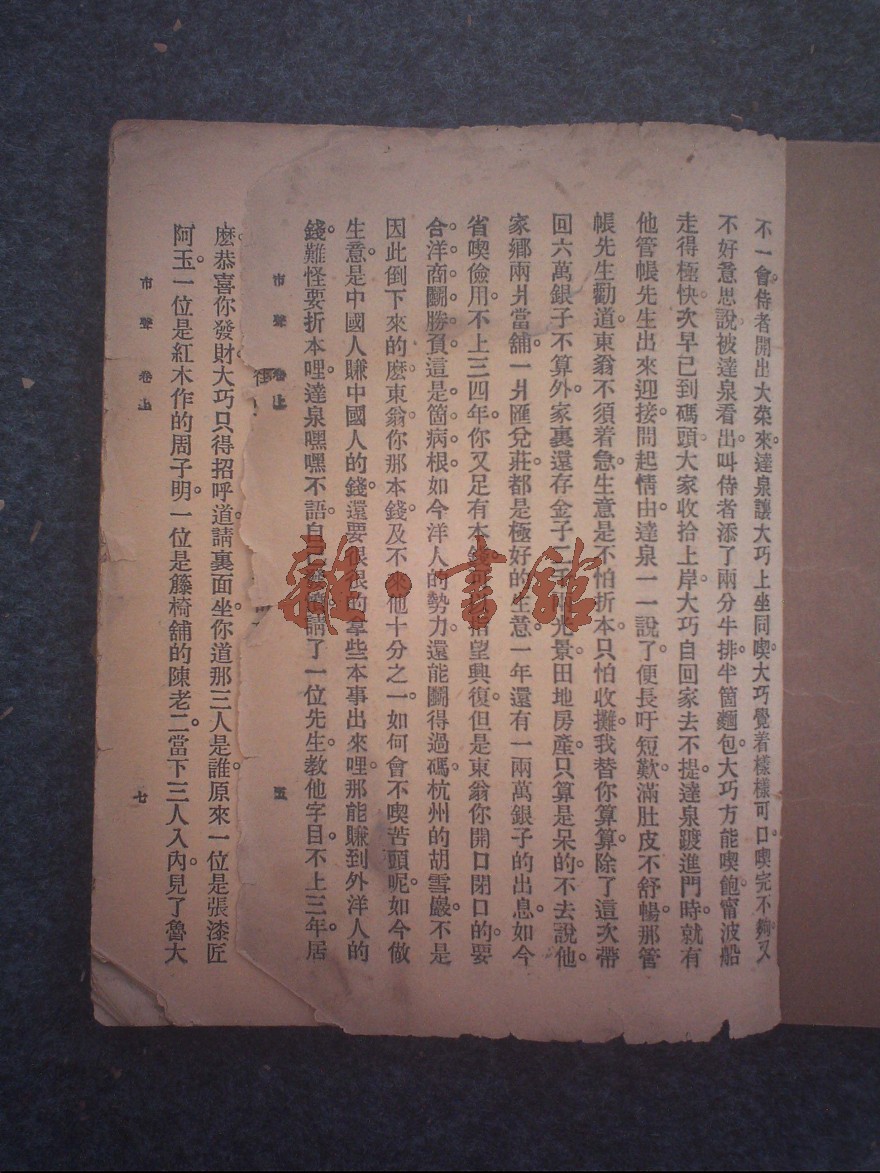 不一會侍者開出大菜來達泉讓大巧上坐同喫大巧覺着樣樣可口喫完不夠又
不好意思說被達泉看出叫侍者添了兩分牛排半箇麵包大巧方能喫飽甯波船
走得極快次早已到碼頭大家收拾上岸大巧自回家去不提達泉踱進門時就有
他管帳先生出來迎接問起情由達泉一一說了便長吁短歎滿肚皮不舒暢那管
帳先生勸道東翁不須着急生意是不怕折本只怕收攤我替你算算除了這次帶
回六萬銀子不算外家裏還存金子二千兩光景田地房產只算是呆的不去說他。
家鄉兩爿當舖一爿匯兌莊都是極好的生意一年還有一兩萬銀子的出息。如今
省喫儉用不上三四年你又足有本錢可以指望興復但是東翁你開口閉口的要
合洋商鬭勝負這是箇病根如今洋人的勢力還能鬭得過碼杭州的胡雪巖不是
因此倒下來的麽東翁你那本錢及不來他十分之一如何會不喫苦頭呢如今做
生意是中國人賺中國人的錢還要狠狠的拿些本事出來哩那能賺到外洋人的
錢難怪要折本哩達泉嘿嘿不語自已 請了一位先生教他字目不上三年居
市聲 卷上 五
麽恭喜你發財大巧只得招呼道請裏面坐你道那三人是誰原來一位是張漆匠
阿玉。一位是紅木作的周子明。一位是籐椅舖的陳老二。當下三人入內見了魯大
市聲 卷上 七
雜·書館